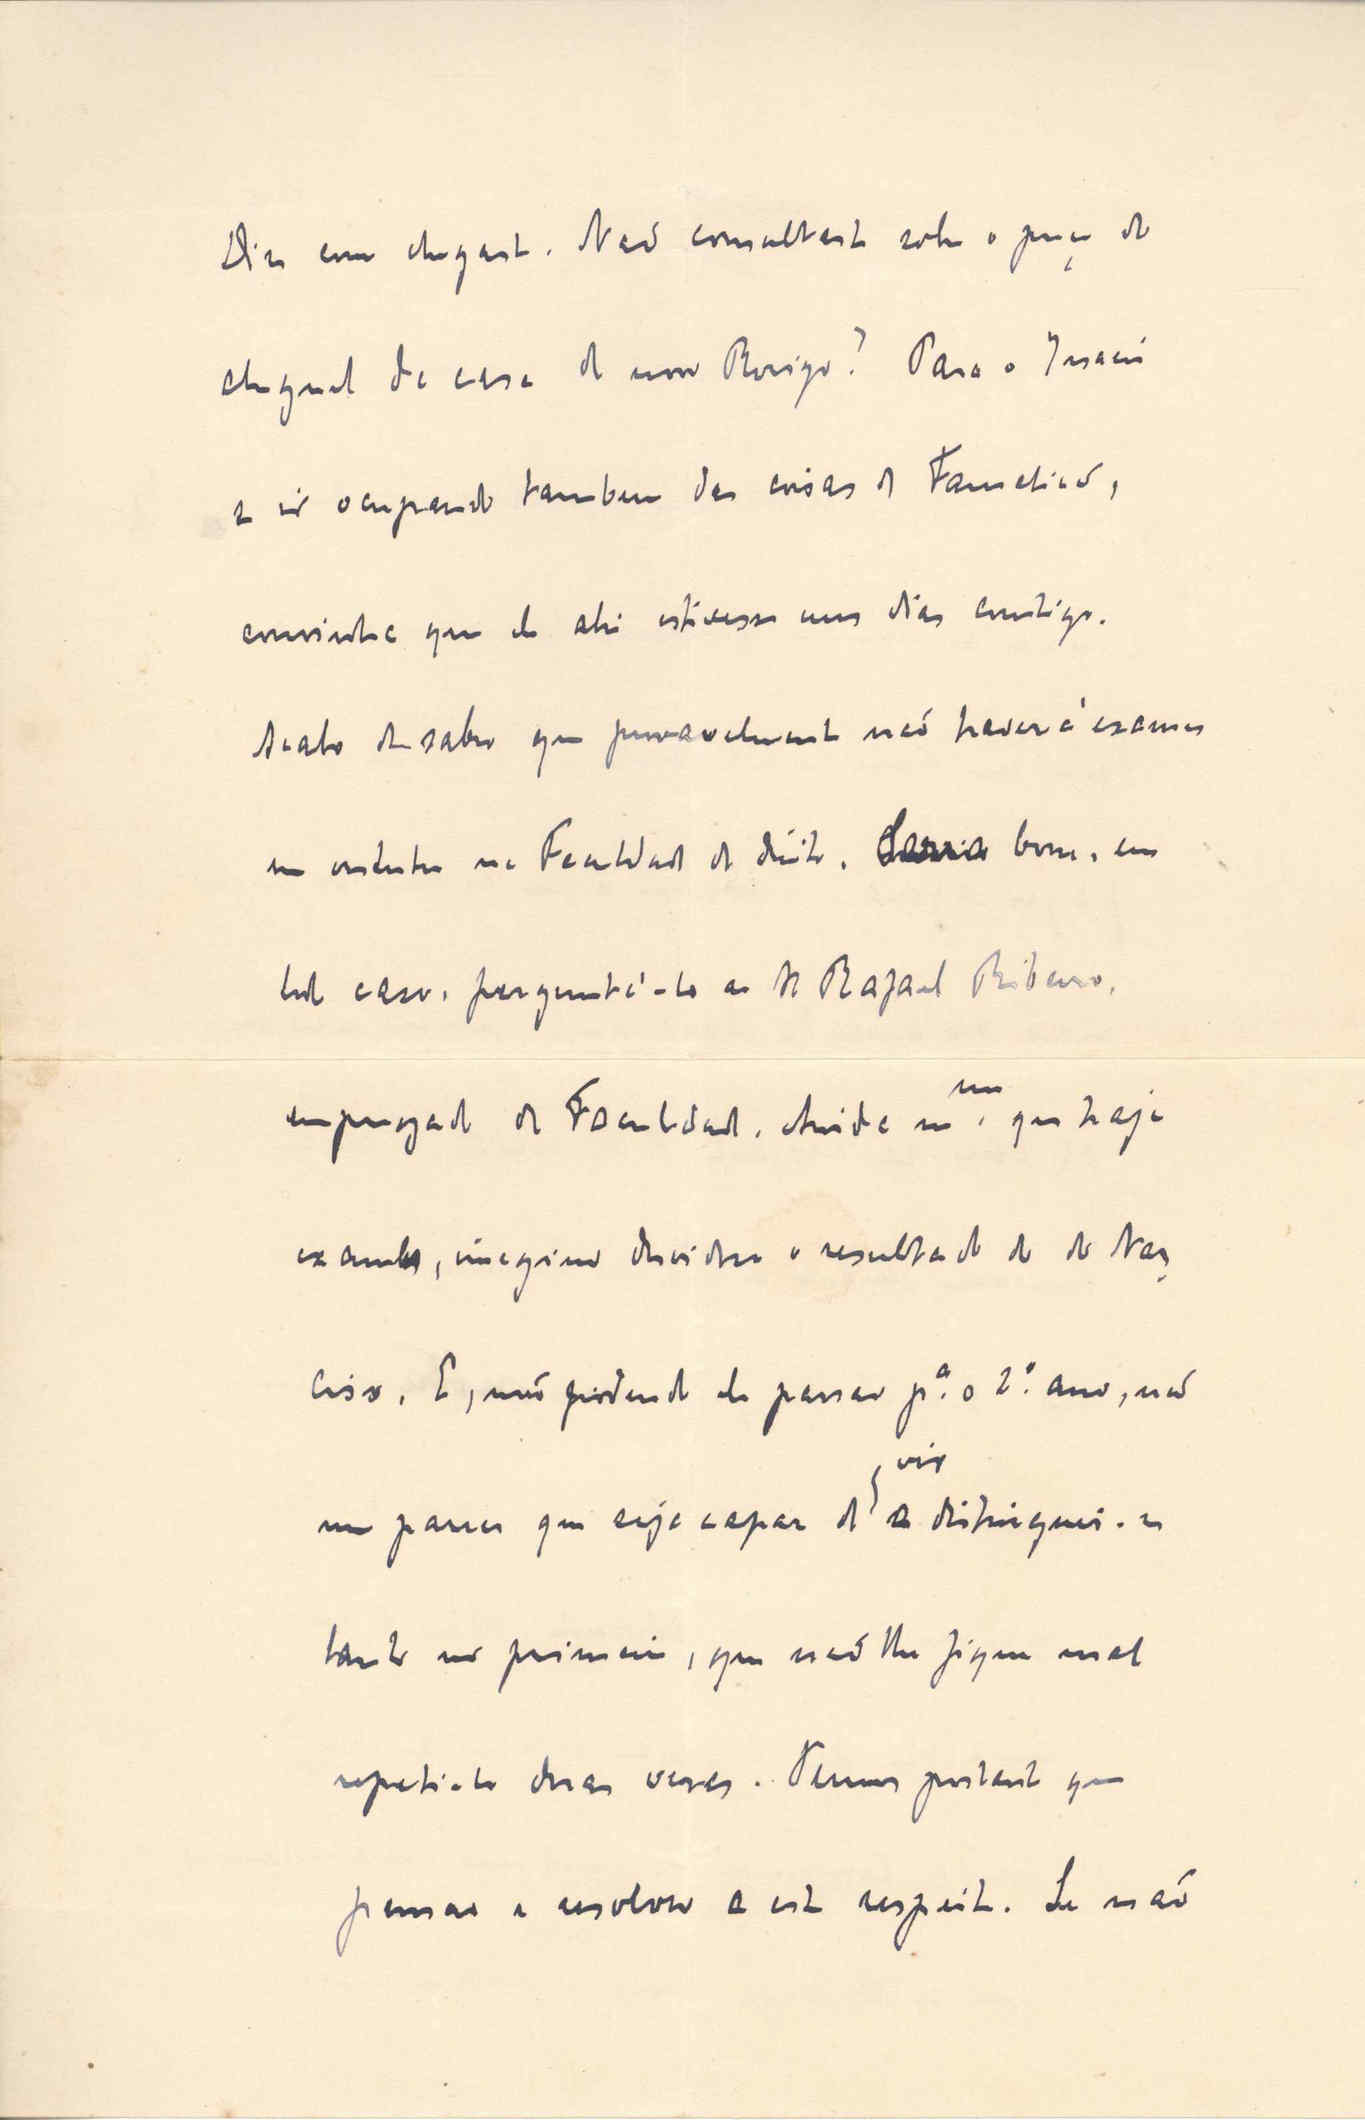 Diz como chegaste. Não consultaste sobre o preço do
aluguel da casa do nosso Rorigo? Para o Inacio
se ir ocupando tambem das coisas de Famalicão,
convinha que ele ahi estivesse uns dias contigo.
Acabo de saber que provavelmente não haverá exames
em outubro na Faculdade de direito. Seria bom, em
todo caso, perguntá-lo ao Sr Rafael Ribeiro,
empregado da Faculdade. Ainda mesmo que haja
exames, imagino duvidoso o resultado do do Nar
ciso. E, não podendo ele passar p.ª o 2.º ano, não
me parece que seja capaz de vir a distinguir-se
tanto no primeiro, que não lhe fique mal
repeti-lo duas vezes. Temos portanto que
pensar e resolver a este respeito. Se não